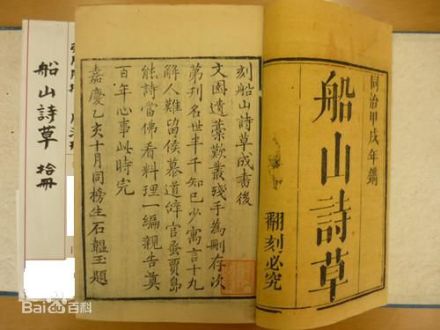 同治甲戌年鐫
船山詩草
翻刻必究
刻船山詩草成書後
文園遺藁歎叢殘手為刪存次
第刋名世半千知己少寓言十九
解人難留侯慕道辭官蚤賈島
能詩當佛看料理一編親告奠
百年心事此時完
嘉慶乙亥十月同榜生石韞玉題
船山詩草 拾冊
Bai百科